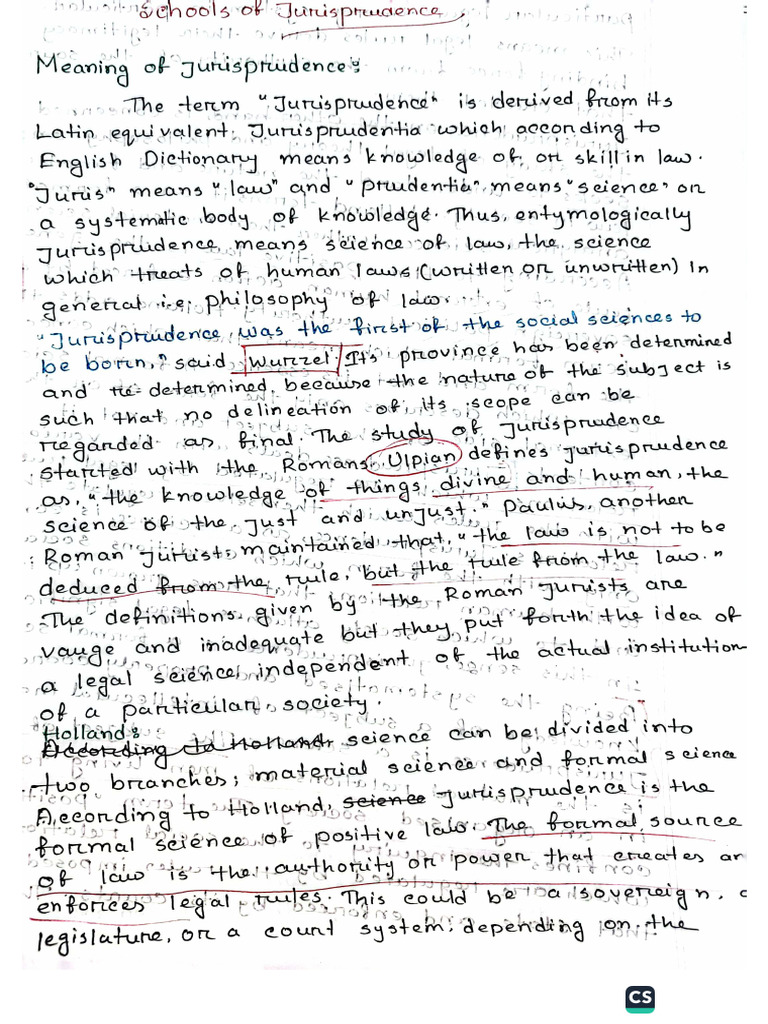 Schools of Jurisprudence
Meaning of Jurisprudence:
The term "Jurisprudence" is derived from its
Latin equivalent Jurisprudentia which according to
English Dictionary means knowledge of or skill in law.
"Juris" means "law" and "prudentia" means "science" or
a systematic body of knowledge. Thus, entymologically
Jurisprudence means science of law, the science
which treats of human laws (written or unwritten) in
general i.e. philosophy of law.
"Jurisprudence was the first of the social sciences to
be born," said Wurzel. It's province has been determined
and re-determined because the nature of the subject is
such that no delineation of its scope can be
regarded as final. The study of Jurisprudence
started with the Romans. Ulpian defines Jurisprudence
as, "the knowledge of things, divine and human, the
science of the just and unjust." Paulus, another
Roman Jurist maintained that, "the law is not to be
deduced from the rule, but the rule from the law."
The definitions given by the Roman Jurists are
vauge and inadequate but they put forth the idea of
a legal science independent of the actual institution
of a particular society.
Holland:
According to Holland, science can be divided into
two branches; material science and formal science
According to Holland, science Jurisprudence is the
formal science of positive law. The formal source
of law is the authority or power that creates an
enforces legal rules. This could be a sovereign, a
legislature, or a court system, depending on the
CS